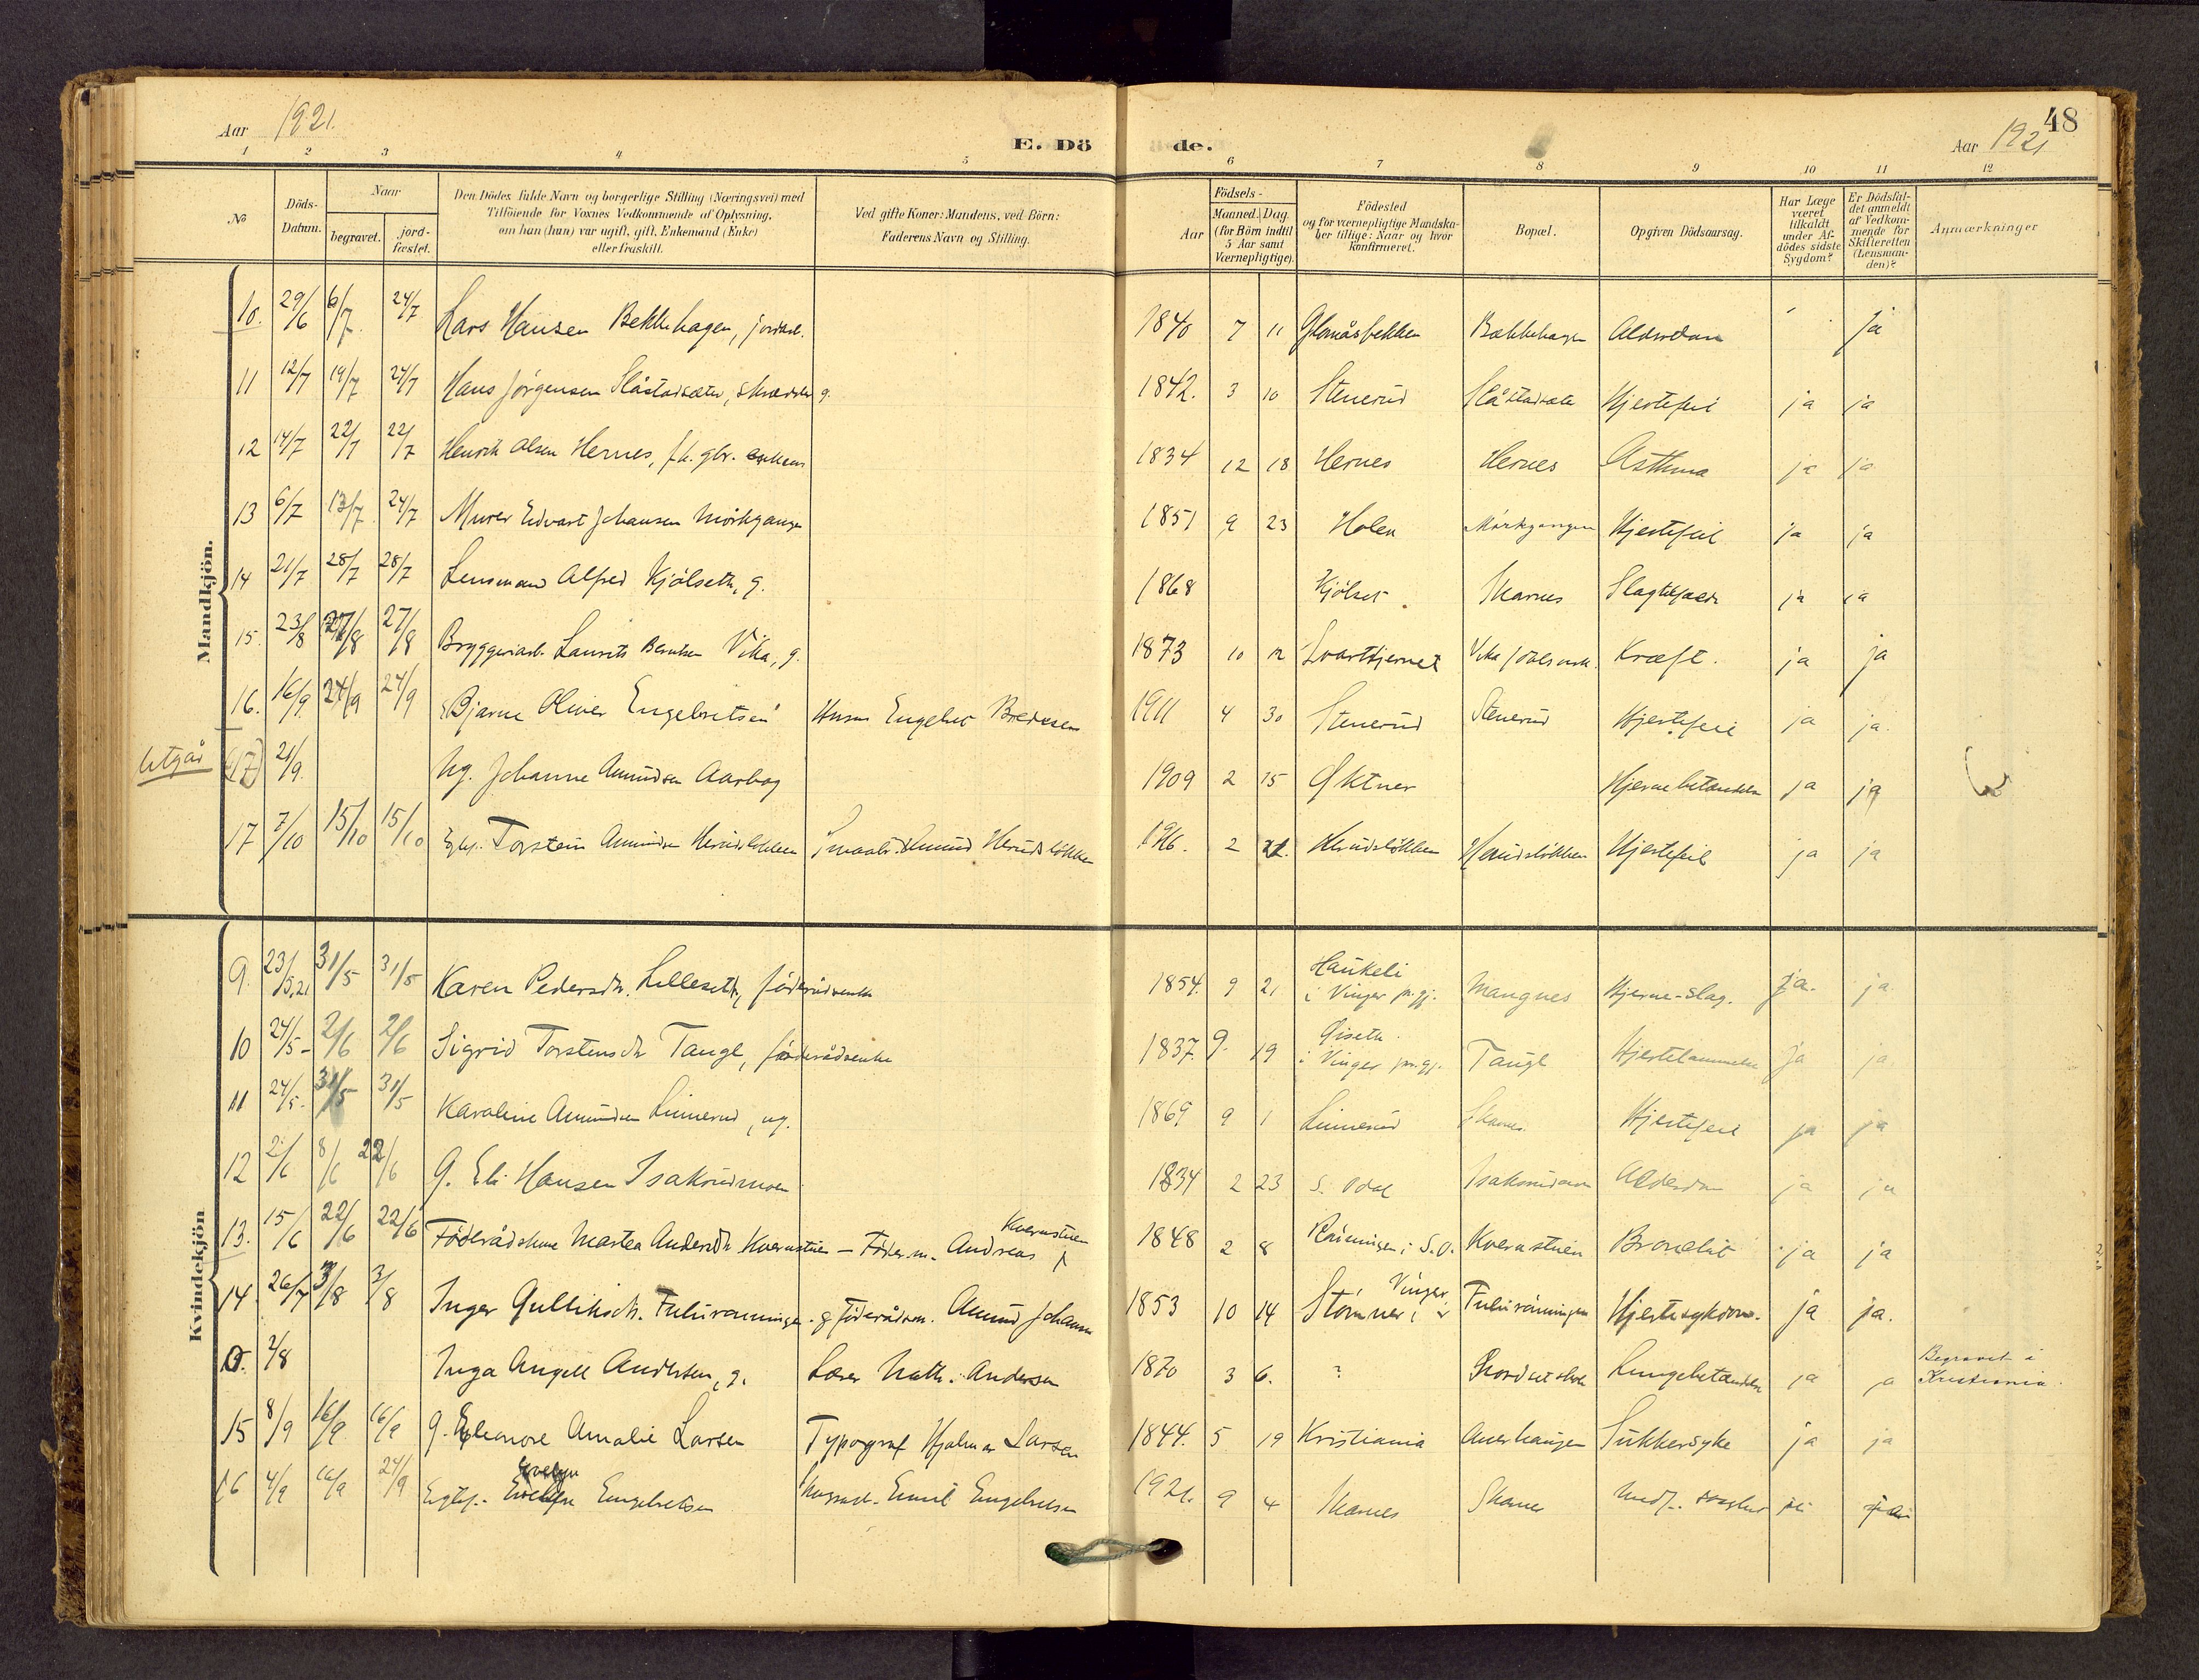 Aar 1921.
E. Dö
de.
Aar 1921
48
1 2 3 4 5 6 7 8 9 10 11 12
No
Döds-Datum.
Naar
begravet.
jord-fæstet.
Den Dödes fulde Navn og borgerlige Stilling (Næringsvei) med
Tilföiende for Voxnes Vedkommende af Oplysning,
om han (hun) var ugift, gift, Enkemand (Enke)
eller fraskilt.
Ved gifte Koner: Mandens, ved Börn:
Faderens Navn og Stilling.
Födsels-
Aar
Maaned. Dag.
(for Börn indtil
5 Aar samt
Værnepligtige).
Födested
og for værnepligtige Mandska-
ber tillige: Naar og hvor
konfirmeret.
Bopæl.
Opgiven Dödsaarsag.
Har Læge
været
tilkaldt
under Af-
dödes sidste
Sygdom?
Er Dödsfal-
det anmeldt
af Vedkom-
mende for
Skifteretten
(Lensman-
den)?
Anmærkninger
Mandkjön.
10. 29/6 6/7 24/7 Lars Hansen Bekkehagen, 1840 7 11 Glomåsbekken Bækkehagen Alderdom ja
11 12/7 19/7 24/7 Hans Jörgensen Slåstadsæter, skrædder g. 1842. 3 10 Stenerud Slåstadsæter Hjertefeil ja ja
12 14/7 22/7 22/7 Henrik Olsen Hernes, fh. gbr. enkem 1834 12 18 Hernes Hernes Asthma ja ja
13 6/7 13/7 24/7 Murer Edvart Johansen Mörkgangen 1851 9 23 Holen Mörkgangen Hjertefeil ja ja
14 21/7 28/7 28/7 Lensmand Alfred Kjölseth, g. 1868 Kjölset Skarnes Slagtilfælde ja ja
15. 23/8 27/8 27/8 Bryggeriarb. Laurits Berntsen Vika, g. 1873 10 12 Svarttjernet Vika Kræft. ja ja
16. 16/9. 24/9 24/9 Bjarne Oliver Engebretsen Husm Engebret Bredesen 1911 4 30 Stenerud Stenerud Hjertefeil ja ja.
utgår (17) 21/9. Ug. Johanne Amundsen Aarhog 1909 2 15 Öktner Hjernebetændelse ja ja
17 7/10 15/10 15/10 Torstein Amundsen Herudslökken Smaabr. Amund Herudslökken 2 Herudslökken Herudslökken Hjertefeil ja ja
Kvindekjön
9. 23/5.21 31/5 31/5 Karen Pedersdr. Lilleseth, föderådsenke 1854. 9 21 Haukeli i Vinger pr.gj. Mangnes Hjerne-slag. ja. ja
10 24/5- 2/6 2/6 Sigrid Torstensdr Taugl, föderådsenke 1837. 9. 19 Giseth i Vinger pr.gj. Taugl Hjertelammelse ja ja.
11 24/5. 31/5 31/5 Karoline Amundsen Linnerud, ug. 1869 9 1 Linnerud Skarnes Hjertefeil ja ja
12 2/6 8/6 22/6 G. Eli Hansen Isakrudmoen 1834 2 23 S. Odal Isakrudmoen Alderdom ja ja
13. 15/6 22/6 22/6 Föderådskone Martea Andersdr Kvernstuen – Föder.m. Andreas Kvernstuen 1848 2 8 Rönningen i S.O. Kvernstuen Bronchit ja ja
14 26/7 3/8 3/8 Inger Gulliksdr. Fulurönningen. g föderådsm. Amund Johansen 1853 10 14 Störmner i Vinger Fulurönningen Hjertesykdom. ja ja.
2/8 Inga Angell Andersen, g. Lærer Math. Andersen 1870 3 6. ? Lungebetændelse ja ja Begravet i Kristiania.
15 8/9 16/9 16/9 G. Eleonore Amalie Larsen Typograf Hjalmar Larsen 1844. 5 19 Kristiania Auerhaugen Sukkersyke ja ja
16 4/9 16/9 24/9 Evelyn Engebretsen Emil Engebretsen 1921. 9 4 Skarnes Skarnes Medf. svaghet ja